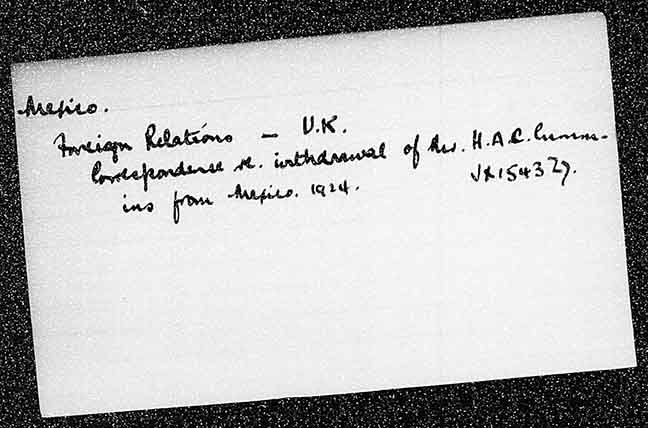 Mexico.
Foreign Relations – U.K.
Correspondence re. withdrawal of Mr. H.A.C. Cumm-
ins from Mexico. 1924. JX1543 Z7.